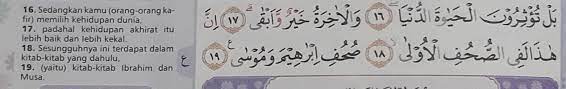 16. Sedangkan kamu (orang-orang ka-
fir) memilih kehidupan dunia,
17. padahal kehidupan akhirat itu
lebih baik dan lebih kekal.
18. Sesungguhnya ini terdapat dalam
kitab-kitab yang dahulu,
19. (yaitu) kitab-kitab Ibrahim dan
Musa.
ع
بَلْ تُؤْثِرُونَ الْحَيٰوةَ الدُّنْيَا ۝١٦ وَالْاٰخِرَةُ خَيْرٌ وَّاَبْقٰى ۝١٧ اِنَّ
هٰذَا لَفِى الصُّحُفِ الْاُوْلٰى ۝١٨ صُحُفِ اِبْرٰهِيْمَ وَمُوْسٰى ۝١٩